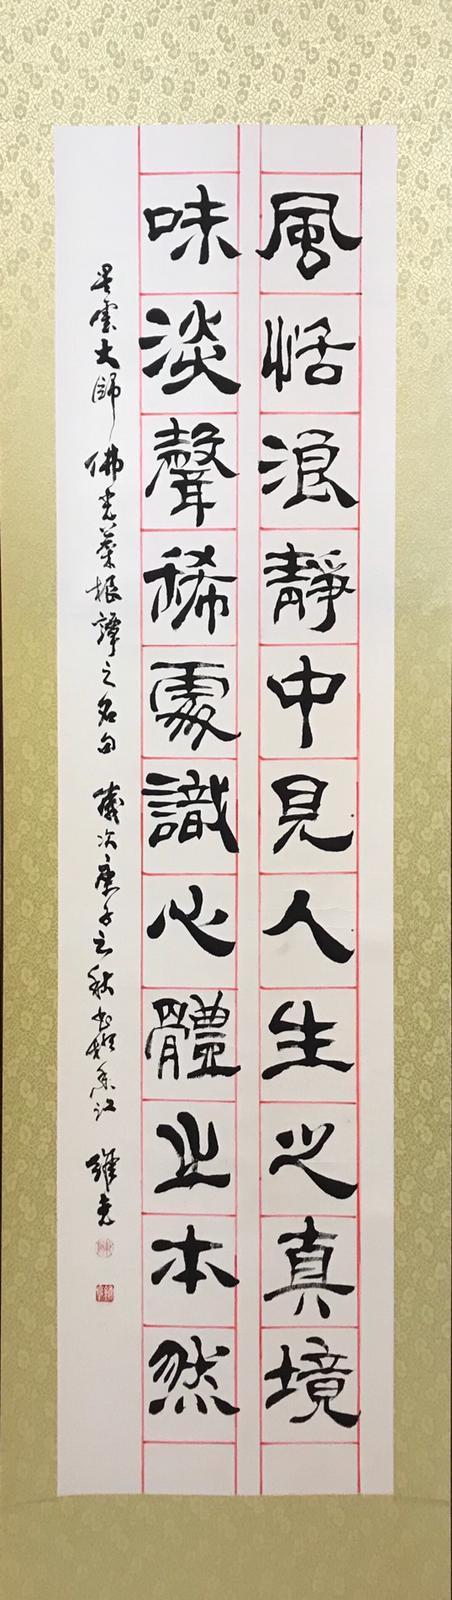 風恬浪靜中見人生之真境
味淡聲稀處識心體之本然
星雲大師佛光菜根譚之名句 歲次庚子之秋書於香江 羅堯